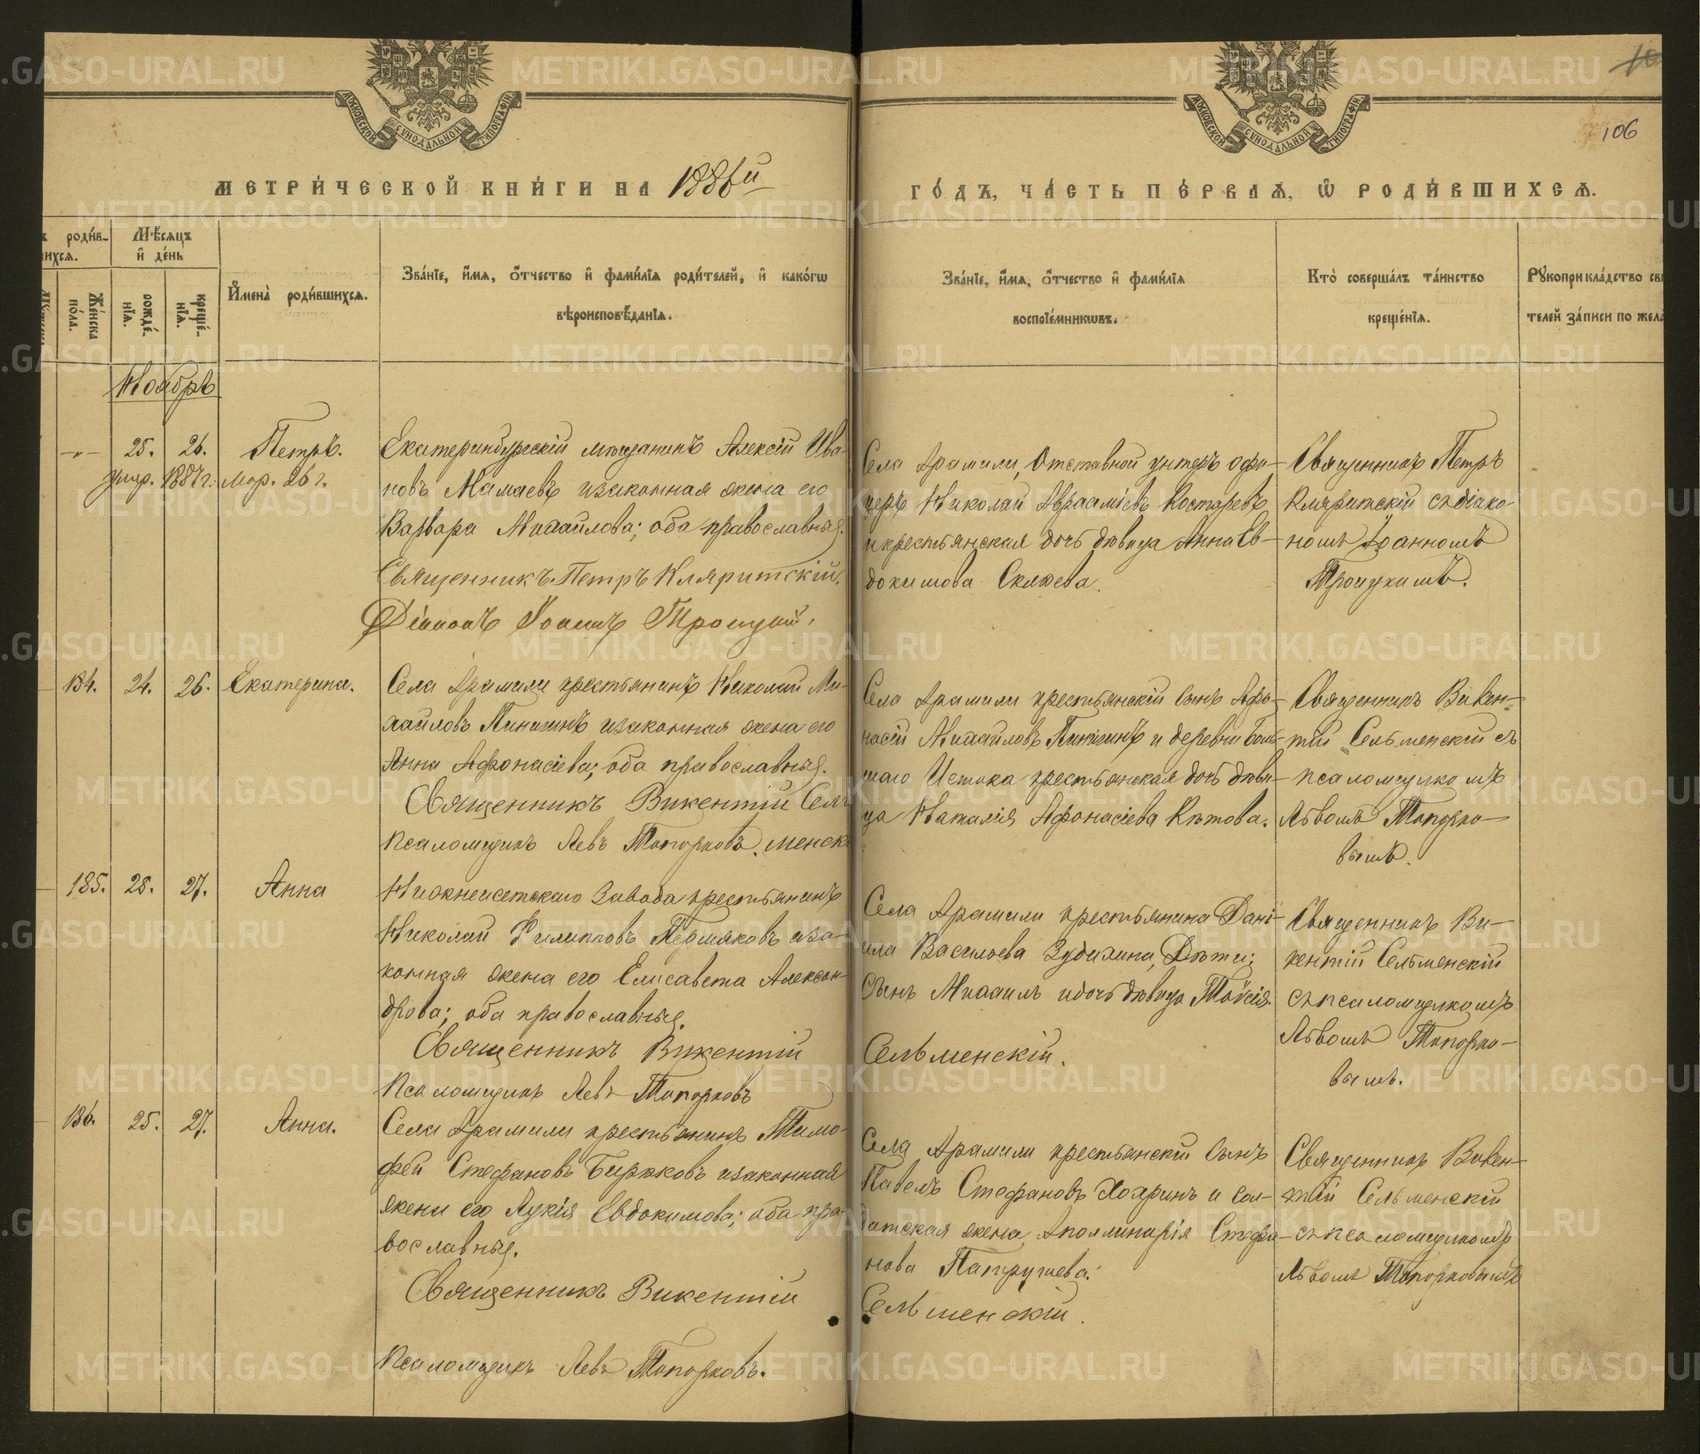 МЕТРИ́ЧЕСКОЙ КНИ́ГИ НА 1886й
ГО́ДЪ, ЧА́СТЬ ПЕ́РВАѦ, Ѡ РОДИ́ВШИХСѦ.
106
роди́в-
шихся.
Мѣ́сяцъ
и де́нь
Же́нска
по́ла.
рожде́-
нїя.
креще́-
нїя.
И҆мена̀ роди́вшихся.
Зва́нїе, и҆́мя, ѻ҆́тчество и҆ фами́лїя роди́телей, и҆ како́гѡ
вѣроисповѣ́данїя.
Зва́нїе, и҆́мя, ѻ҆́тчество и҆ фами́лїя
воспрїе́мникѡвъ.
Кто̀ соверша́лъ та́инство
креще́нїя.
Рꙋкоприкла́дство сви
телей за́писи по жела
Ноябрь
-"- 25. 26. Петръ.
умр. 1887 г. мар. 26 г.
Екатеринбургскій мѣщанинъ Алексій Ива-
новъ Мамаевъ и законная жена его
Варвара Михаилова; оба православные.
Священникъ Петръ Кляритскій.
Діаконъ Іоаннъ Троицкій.
Села Арамили, Отставной унтеръ офи-
церъ Николай Авраамiевъ Костаревъ
и крестьянская дочь дѣвица Анна Ев-
докимова Скляева.
Священникъ Петръ
Кляритскій съ діако-
номъ Іоанномъ
Троицкимъ.
184. 24. 26. Екатерина.
Села Арамили крестьянинъ Николай Ми-
хайловъ Пинигинъ и законная жена его
Анна Афонасіева; оба православные.
Священникъ Викентій Сель
Псаломщикъ Левъ Топорковъ. менск
Села Арамили крестьянскій сынъ Афо-
насій Михайловъ Пинигинъ и деревни Боль-
шаго Истока крестьянская дочь дѣви-
ца Наталія Афонасіева Кѣтова.
Священникъ Викен-
тій Сельменскій съ
псаломщикомъ
Львомъ Топорко-
вымъ.
185. 25. 27. Анна
Нижнеисетскаго Завода крестьянинъ
Николай Филипповъ Пермяковъ и за-
конная жена его Елисавета Алексан-
дрова; оба православные.
Священникъ Викентій
Псаломщикъ Левъ Топорковъ
Села Арамили крестьянина Дані-
ила Васильева Зубихина, Дѣти:
Сынъ Михаилъ и дочь дѣвица Таисія.
Сельменскій.
Священникъ Ви-
кентій Сельменскій
съ псаломщикомъ
Львомъ Топорко-
вымъ.
186. 25. 27. Анна.
Села Арамили крестьянинъ Тимо-
фей Стефановъ Бирюковъ и законная
жена его Лукія Евдокимова; оба пра-
вославные.
Священникъ Викентій
Псаломщикъ Левъ Топорковъ.
Села Арамили крестьянскій сынъ
Павелъ Стефановъ Хояринъ и сол-
датская жена Аполлинарія Стефа-
нова Патрушева.
Сельменскій.
Священникъ Викен-
тій Сельменскій
съ псаломщикомъ
Львомъ Топорковымъ
METRIKI.GASO-URAL.RU